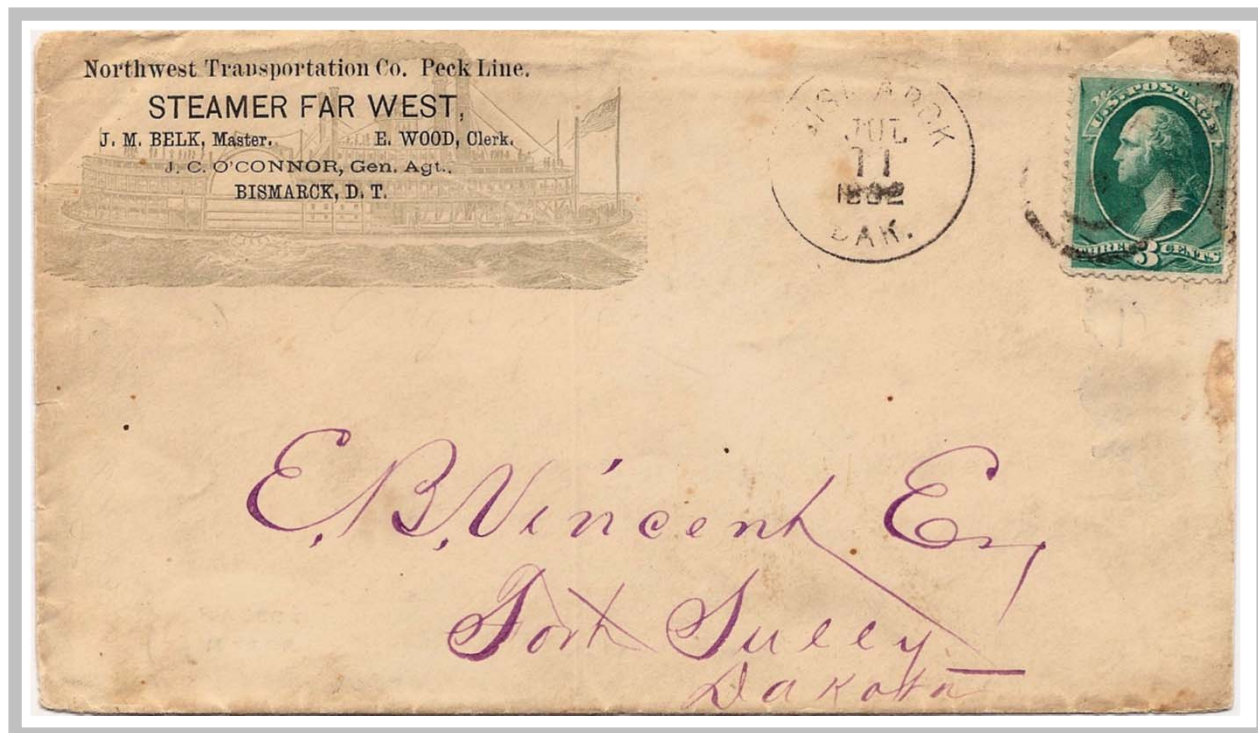 Northwest Transportation Co. Peck Line.
STEAMER FAR WEST,
J. M. BELK, Master. E. WOOD, Clerk.
J. C. O'CONNOR, Gen. Agt.,
BISMARCK, D. T.
BISMARCK
JUL
11
1882
DAK.
U.S. POSTAGE
THREE 3 CENTS
E. B. Vincent Esq
Fort Sully
Dakota